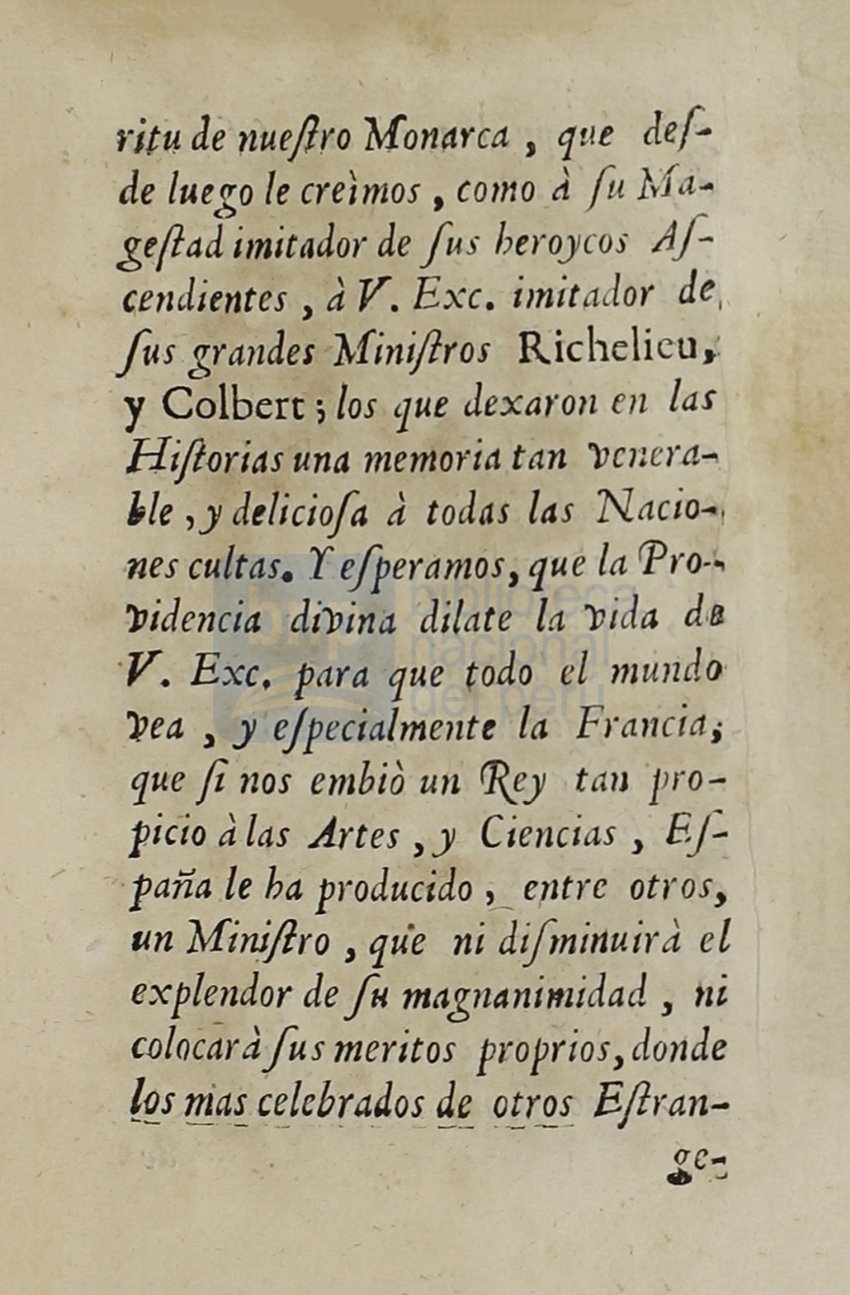 ritu de nueſtro Monarca , que deſ-
de luego le creìmos , como à ſu Ma-
geſtad imitador de ſus heroycos Aſ-
cendientes , à V. Exc. imitador de
ſus grandes Miniſtros Richelieu,
y Colbert ; los que dexaron en las
Hiſtorias una memoria tan venera-
ble , y delicioſa à todas las Nacio-
nes cultas. Y eſperamos, que la Pro-
videncia divina dilate la vida de
V. Exc. para que todo el mundo
vea , y eſpecialmente la Francia,
que ſi nos embiò un Rey tan pro-
picio à las Artes , y Ciencias , Eſ-
paña le ha producido , entre otros,
un Miniſtro , que ni diſminuirà el
explendor de ſu magnanimidad , ni
colocarà ſus meritos proprios, donde
los mas celebrados de otros Eſtran-
ge-
biblioteca
nacional
del perú